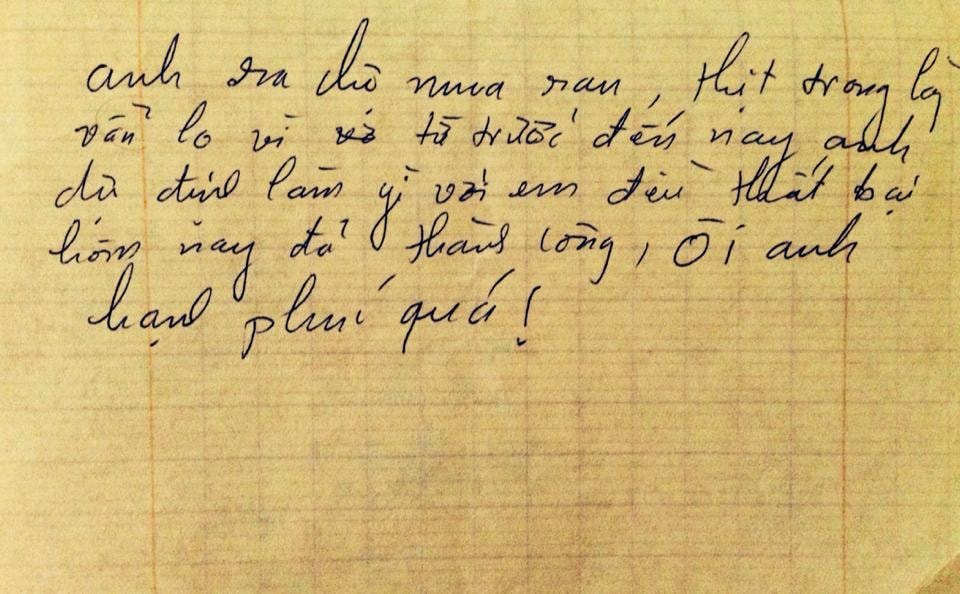 anh ra chờ mua rau, thịt trong lòng
vẫn lo vì từ trước đến nay anh
dù định làm gì với em đều thất bại
hôm nay đã thành công, Ôi anh
hạnh phúc quá!